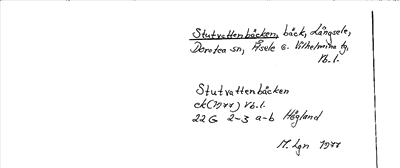 Stutvattenbäcken, bäck, Långsele,
Dorotea sn, Åsele o. Vilhelmina tg,
Vb.l.
Stutvattenbäcken
ek (1977) Vb.l.
22 G 2-3 a-b Högland
M. Lgn 1977